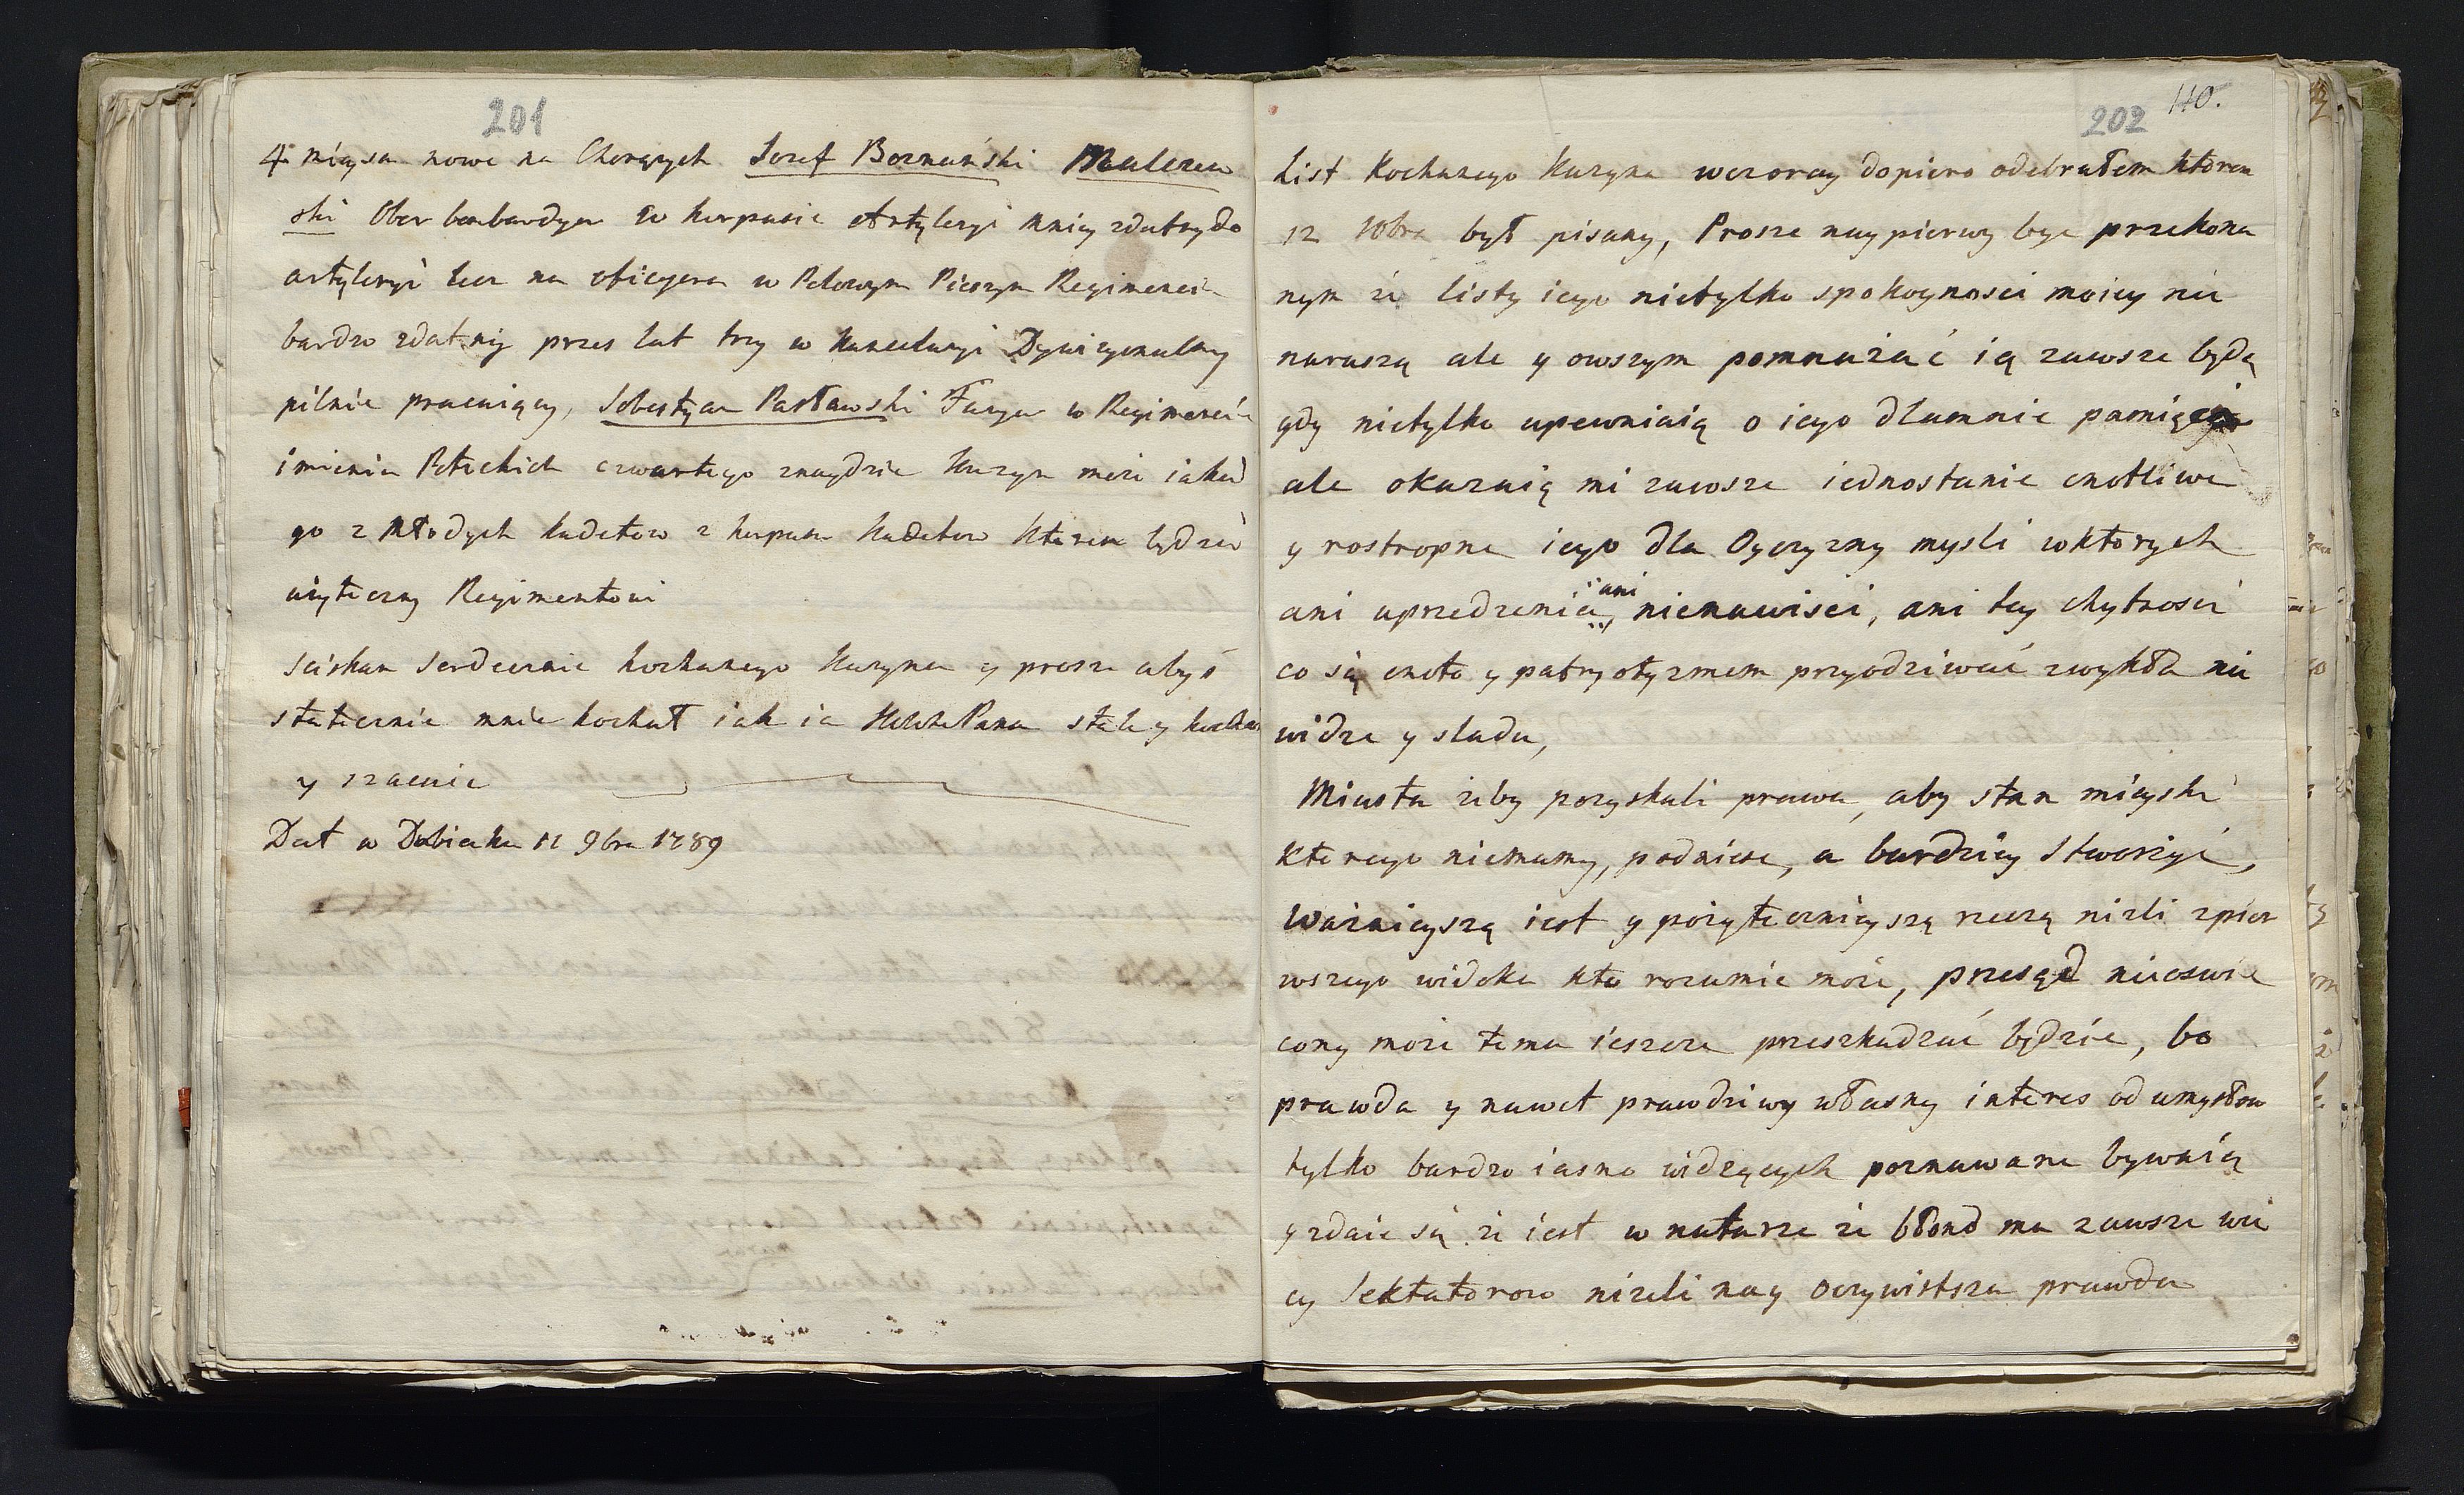 201
4 mieysa nowe na Chorązych Jozef Boznański Malczew
ski Ober bombardyer w korpusie Artyleryi mniey zdatny do
artyleryi lecz na oficyera w Polowym Pieszym Regimencie
bardzo zdatny przez lat trzy w Kancellaryi Dywizyonalney
pilnie pracuiący, Sebestyan Pasławski Furyer w Regimencie
imienia Potockich czwartego znaydzie Kuzyn może iakie
go z młodych kadetow z korpusu Kadetow ktoren będzie
użyteczny Regimentowi
Sciskam serdecznie kochanego Kuzyna y prosze abyś
statecznie mnie kochał iak ia WWPana stale y kocham
y szacuie
Dat w Dubienku 11 9bra 1789
202 110.
List Kochanego Kuzyna wczoray dopiero odebrałem ktoren
12 10bra był pisany, Prosze naypierwy byc przekona
nym że listy iego nietylko spokoynosci moiey nie
naruszą ale y owszym pomnażać ią zawsze będą
gdy nietylko upewniaią o iego dlamnie pamięci
ale okazuią mi zawsze iednostanie cnotliwe
y rostropne iego dla Oyczyzny mysli wktorych
ani uprzedzenia, ani nienawisci, ani tey chytrosci
co się cnoto y patryotyzmem przyodziwać zwykła nie
widze y sladu,
Miasta żeby pozyskali prawa, aby stan mieyski
ktorego niemamy, podniesc, a bardziey stworzyć,
Ważnieyszą iest y pożytecznieyszą rzeczą niżli zpier
wszego widoku kto rozumie może, przesąd nieoswie
cony może temu ieszcze przeszkadzać będzie, bo
prawda y nawet prawdziwy własny interes od umysłow
tylko bardzo iasno widzących poznawane bywaią
y zdaie się że iest w naturze że błond ma zawsze wie
cy Sektatorow niżeli nay oczywistsza prawda